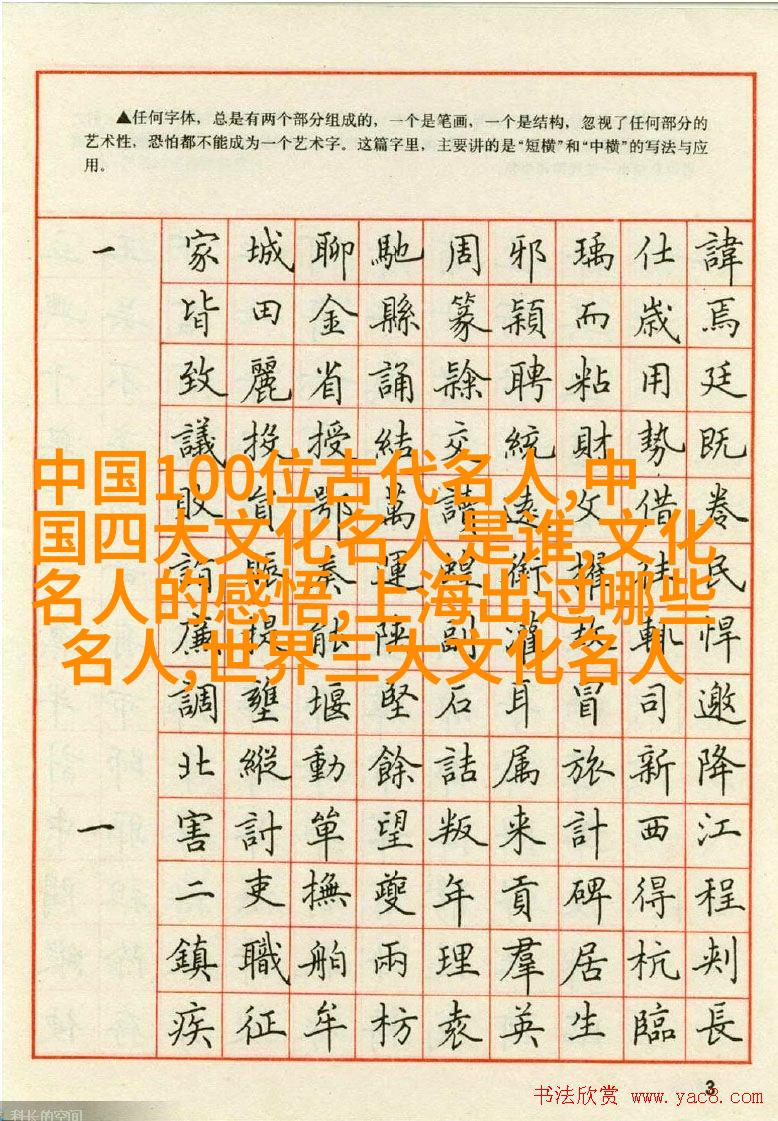 ▲任何字体，总是有两个部分组成的，一个是笔画，一个是结构，忽视了任何部分的
艺术性，恐怕都不能成为一个艺术字。这篇字里，主要讲的是“短横”和“中横”的写法与应
用。
一 家 城 聊 馳 周 邪 瑀 仕 諱
皆 田 金 縣 篆 穎 而 歲 焉
致 麗 省 誦 聘 粘 用 廷
議 投 授 結 交 統 財 勢 既
中国100位古代名人,中
敗 鄂 萬 讀 遠 文 借 卷
国四大文化名人是谁,文化
奏 運 銜 擢 民
名人的感悟,上海出过哪些
廉 提 能 副 灌 故 軌 悍
名人,世界三大文化名人
調 壅 堰 堅 石 耳 冒 司 邀
北 縱 動 餘 詰 属 旅 新 降
一 害 討 單 望 叛 来 計 西 江
二 吏 撫 夔 年 貢 碑 得 程
鎮 職 舶 兩 理 羣 居 杭 刺
疾 征 牟 枋 袁 英 生 臨 長
3
书法欣赏 www.yac8.com
科长的空间